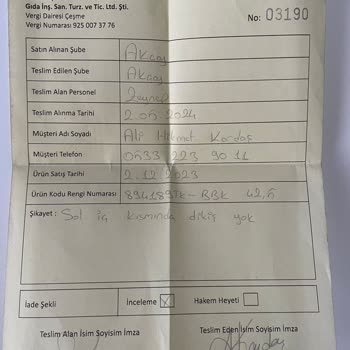 Gıda İnş. San. Turz. ve Tic. Ltd. Şti.
Vergi Dairesi Çeşme
Vergi Numarası 925 007 37 76
No: 03190
Satın Alınan Şube Akçay
Teslim Edilen Şube Akçay
Teslim Alan Personel Zeynep
Teslim Alınma Tarihi 2.05.2024
Müşteri Adı Soyadı Ali Hikmet Kardaş
Müşteri Telefon 0533 223 90 11
Ürün Satış Tarihi 2.12.2023
Ürün Kodu Rengi Numarası 894189TK-RBK 42,5
Şikayet : Sol iç kısmında dikiş yok
İade Şekli İnceleme X Hakem Heyeti
Teslim Alan İsim Soyisim İmza Teslim Eden İsim Soyisim İmza